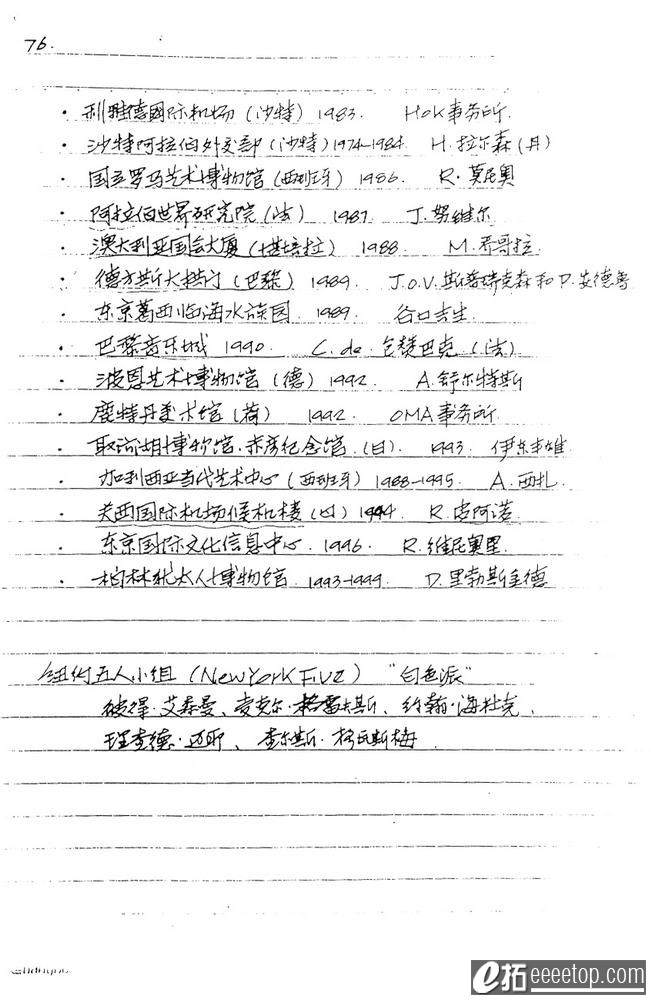 76.
· 利雅德国际机场（沙特）1983. HOK事务所.
· 沙特阿拉伯外交部（沙特）1974-1984. H.拉尔森（丹）
· 国立罗马艺术博物馆（西班牙）1986. R.莫尼奥
· 阿拉伯世界研究院（法）1987. J.努维尔
· 澳大利亚国会大厦（堪培拉）1988. M.乔哥拉
· 德方斯大拱门（巴黎）1989. J.O.V.斯普瑞克森和P.安德鲁
· 东京葛西临海水族园. 1989. 谷口吉生
· 巴黎音乐城 1990. C.de.包赞巴克（法）
· 波恩艺术博物馆（德）1992. A.舒尔特斯
· 鹿特丹美术馆（荷）1992. OMA事务所.
· 取访湖博物馆.赤彦纪念馆.（日）. 1993. 伊东丰雄
· 加利西亚当代艺术中心（西班牙）1988-1995. A.西扎.
· 关西国际机场候机楼（日）1994. R.皮阿诺
· 东京国际文化信息中心. 1996. R.维尼奥里.
· 柏林犹太人博物馆. 1993-1999. D.里勃斯金德
纽约五人小组（New York Five）“白色派”
彼得·艾森曼、麦克尔·格雷夫斯、约翰·海杜克、
理查德·迈耶、查尔斯·格瓦斯梅
e拓 eeeetop.com